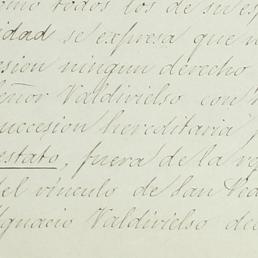 como todos los de su es
idad se expresa que n
esion ningun derecho
eñor Valdivielso con
succesion hereditaria
estato, fuera de la re
del vinculo de San Ped
Ygnacio Valdivielso de